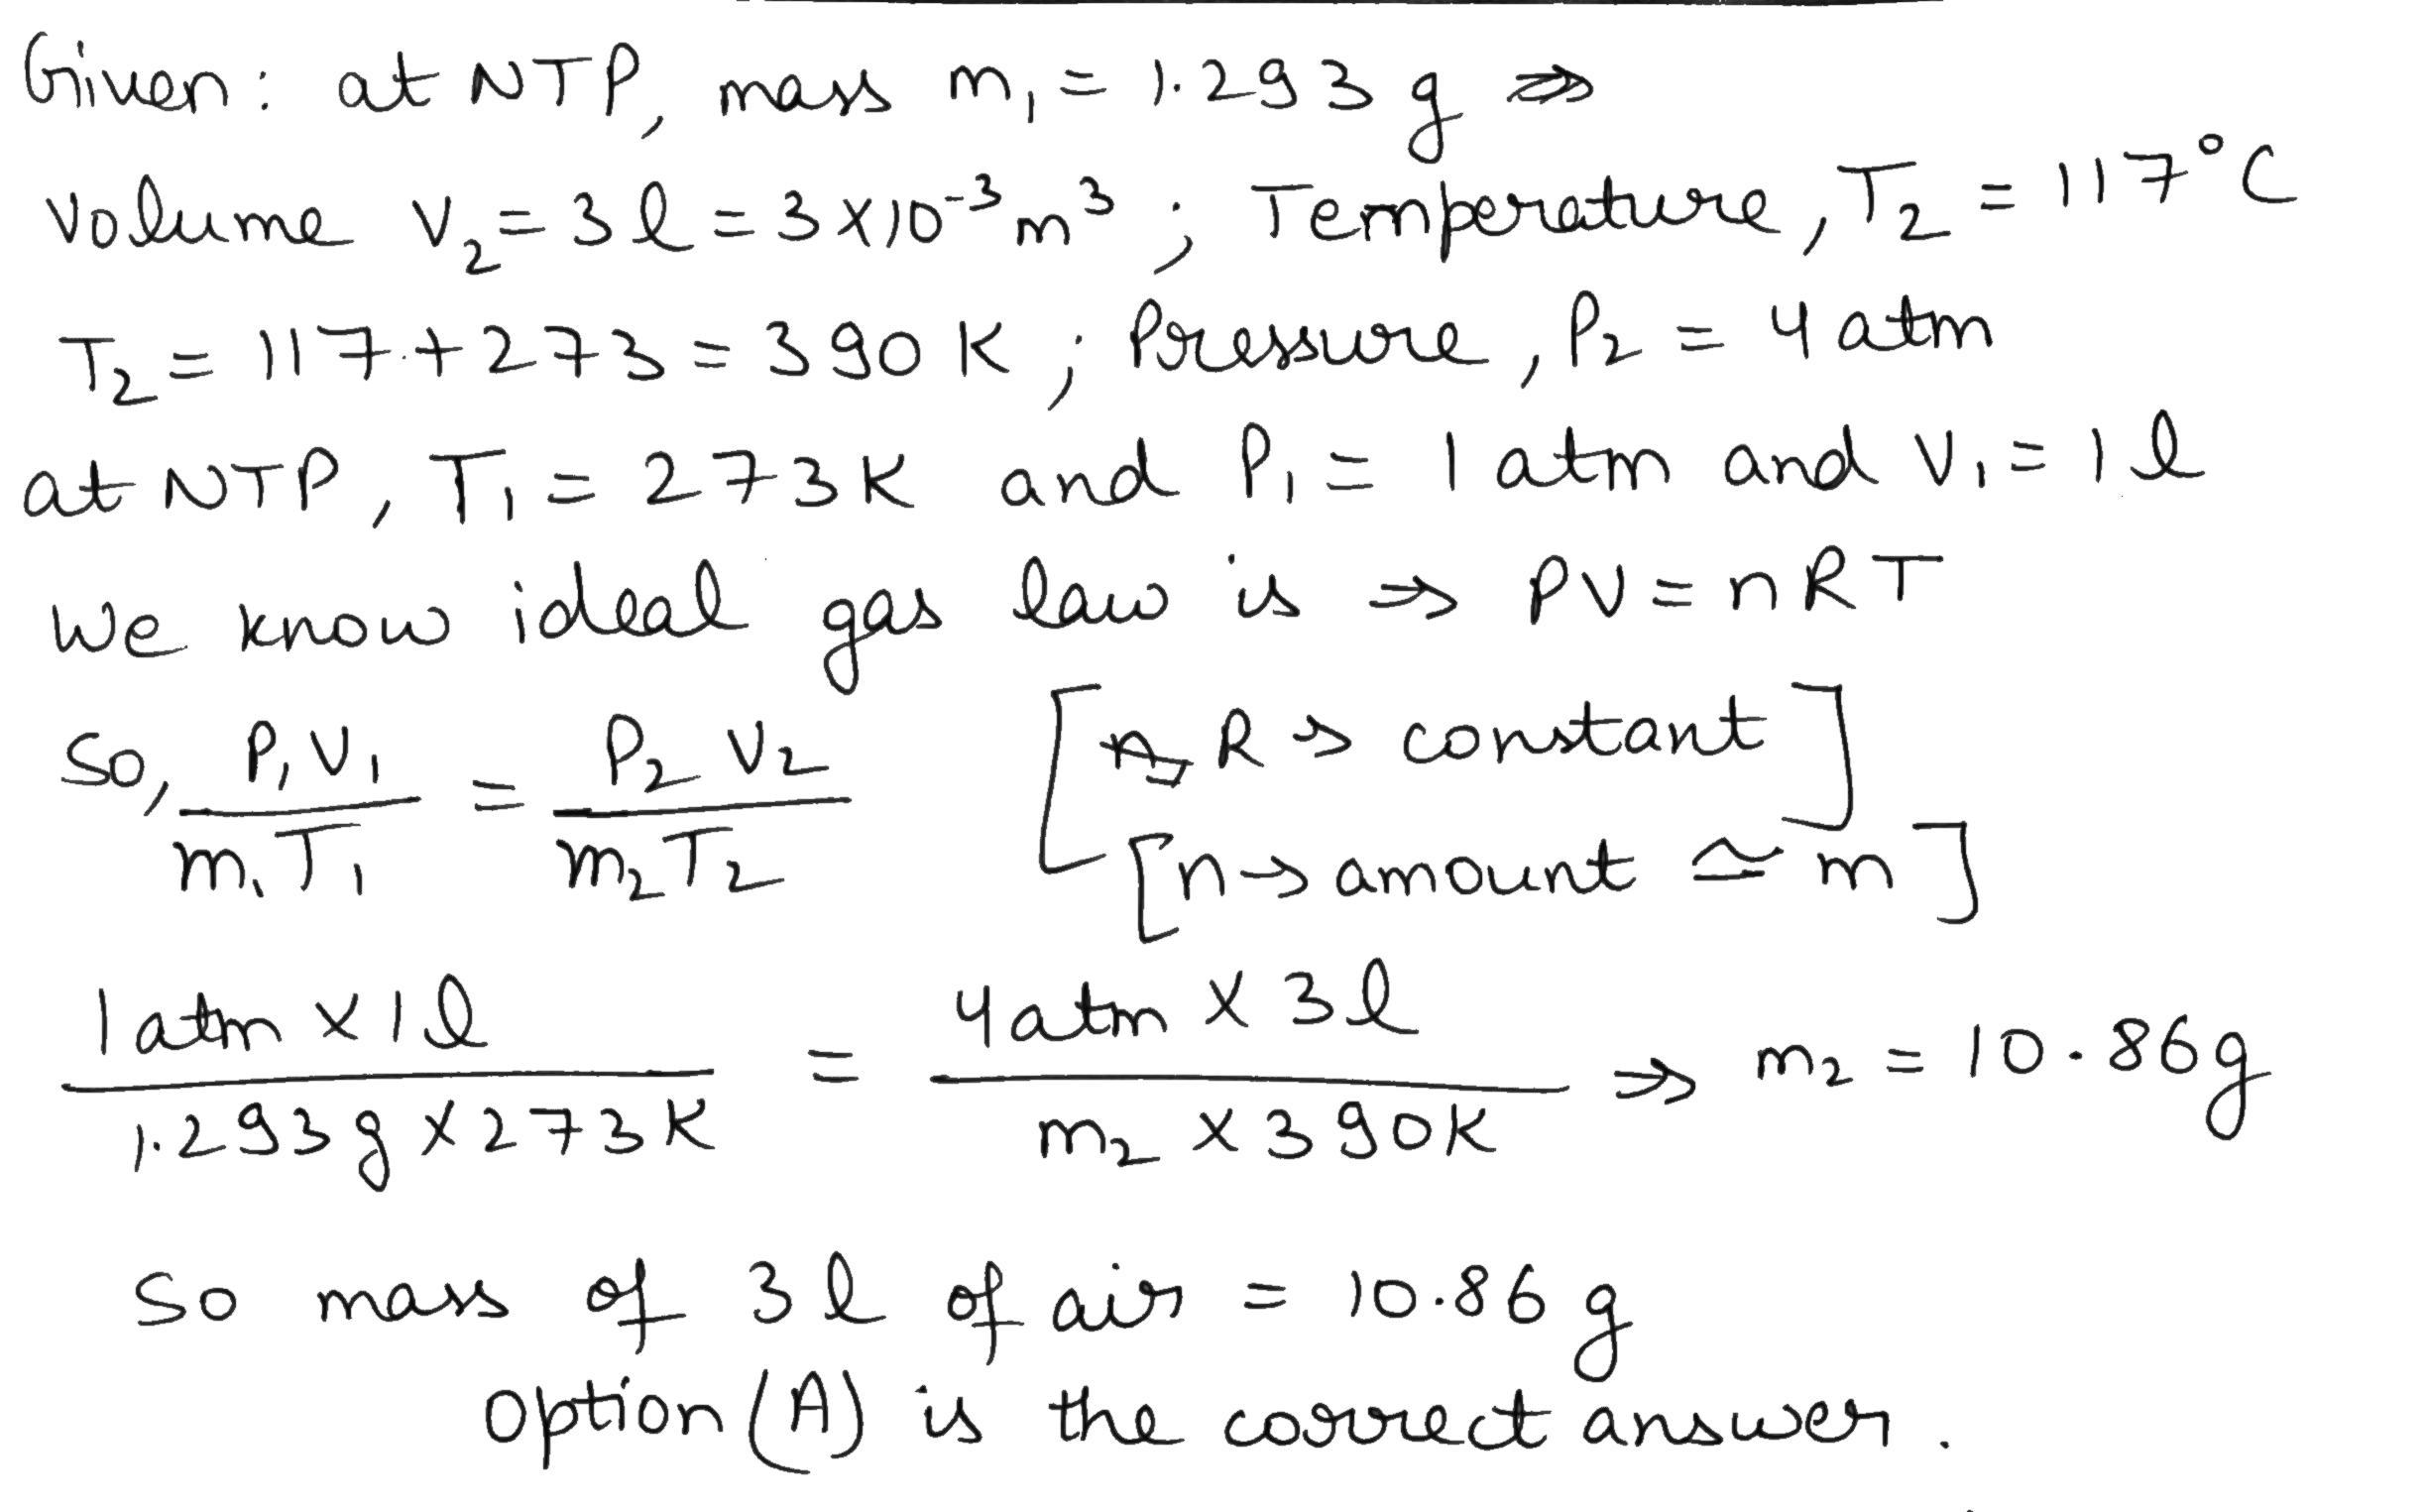 Given: at NTP, mass m₁ = 1.293 g ⇒
Volume V₂ = 3 l = 3 × 10⁻³ m³ ; Temperature, T₂ = 117°C
T₂ = 117 + 273 = 390 K ; Pressure, P₂ = 4 atm
at NTP, T₁ = 273 K and P₁ = 1 atm and V₁ = 1 l
We know ideal gas law is → PV = nRT
So, P₁V₁ / m₁T₁ = P₂ V₂ / m₂T₂ [R → constant]
[n → amount ≅ m]
1 atm × 1 l / 1.293 g × 273 K = 4 atm × 3 l / m₂ × 390 K ⇒ m₂ = 10.86 g
So mass of 3 l of air = 10.86 g
Option (A) is the correct answer.